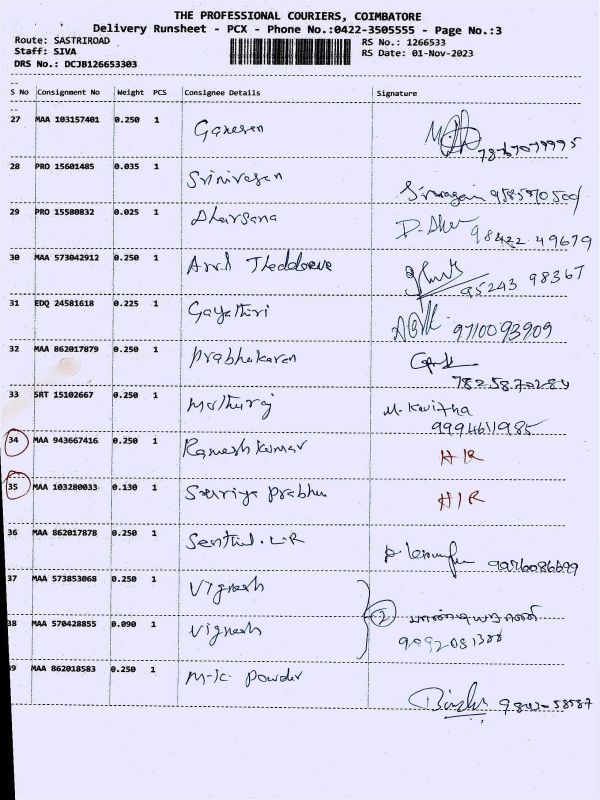 THE PROFESSIONAL COURIERS, COIMBATORE
Delivery Runsheet - PCX - Phone No.:0422-3505555 - Page No.:3
Route: SASTRIROAD
RS No.: 1266533
Staff: SIVA
RS Date: 01-Nov-2023
DRS No.: DCJB126653303
S No Consignment No Weight PCS Consignee Details Signature
27 MAA 103157401 0.250 1 Ganesan
28 PRO 15601485 0.035 1 Srinivasan
29 PRO 15580832 0.025 1 Dharsana D. 98422 49679
30 MAA 573042912 0.250 1 95243 98367
31 EDQ 24581618 0.225 1 Gayathiri 9710093909
32 MAA 862017879 0.250 1 Prabhakaran
7825870284
33 SRT 15102667 0.250 1 Mathuraj M. Kavitha
9994611985
34 MAA 943667416 0.250 1 Rameshkumar H/R
35 MAA 103280033 0.130 1 Surriya Prabhu H/R
36 MAA 862017878 0.250 1 Senthil. L.R
37 MAA 573853068 0.250 1 Vignesh
2
38 MAA 570428855 0.090 1 Vignesh
9092081300
39 MAA 862018583 0.250 1 M-K Powder